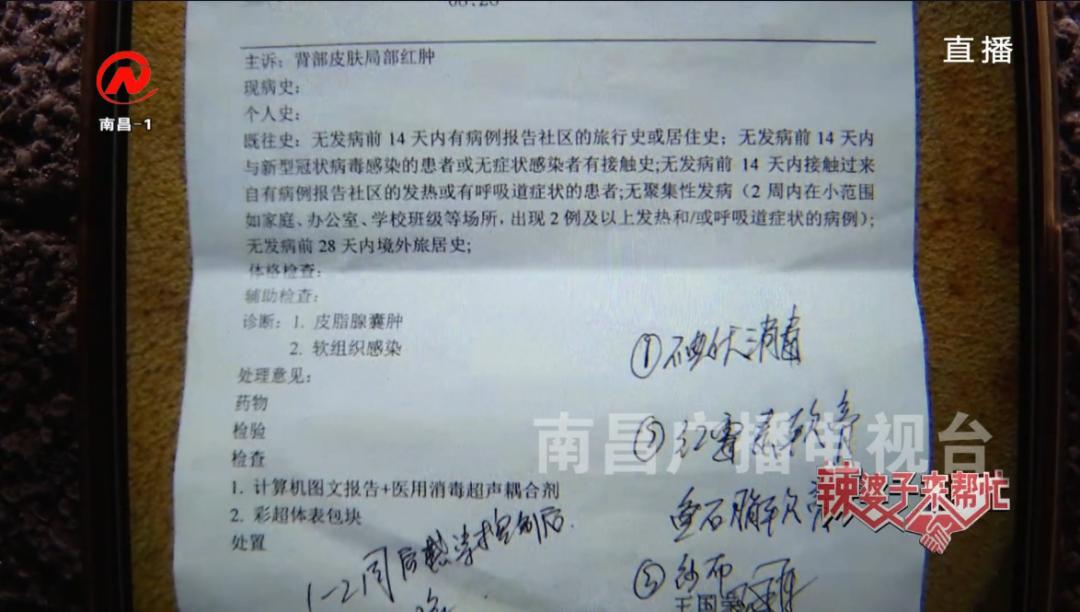 08:26
直播
南昌-1
主诉：背部皮肤局部红肿
现病史：
个人史：
既往史：无发病前 14 天内有病例报告社区的旅行史或居住史；无发病前 14 天内
与新型冠状病毒感染的患者或无症状感染者有接触史;无发病前 14 天内接触过来
自有病例报告社区的发热或有呼吸道症状的患者;无聚集性发病（2 周内在小范围
如家庭、办公室、学校班级等场所，出现 2 例及以上发热和/或呼吸道症状的病例）；
无发病前 28 天内境外旅居史;
体格检查：
辅助检查：
诊断：1. 皮脂腺囊肿
2. 软组织感染
①碘伏消毒
处理意见：
药物
②红霉素软膏
南昌广播电视台
检验
检查
辣婆子来帮忙
1. 计算机图文报告+医用消毒超声耦合剂
鱼石脂软膏
2. 彩超体表包块
处置
1-2周后感染控制后
③纱布